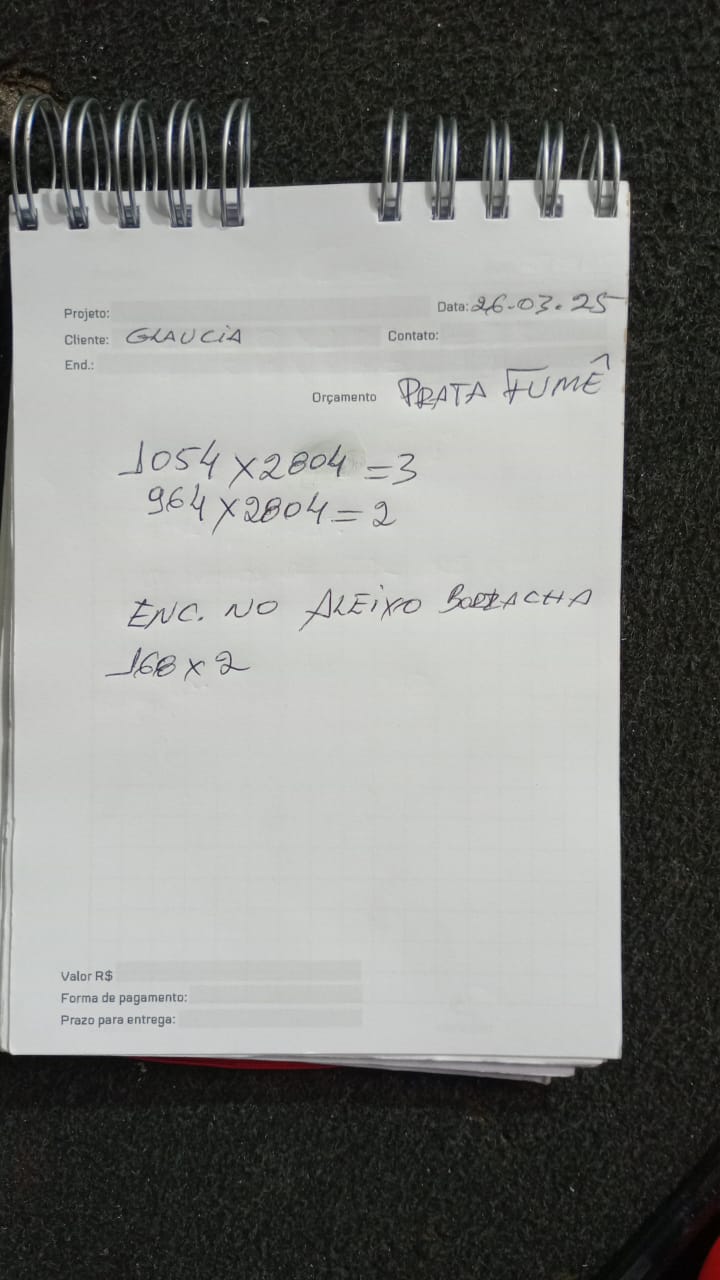 Projeto: Data: 26.03.25
Cliente: GLAUCIA Contato:
End.:
Orçamento PRATA FUMÊ
1054 x 2804 = 3
964 x 2804 = 2
ENC. NO ALEIXO BORRACHA
168 x 2
Valor R$
Forma de pagamento:
Prazo para entrega: